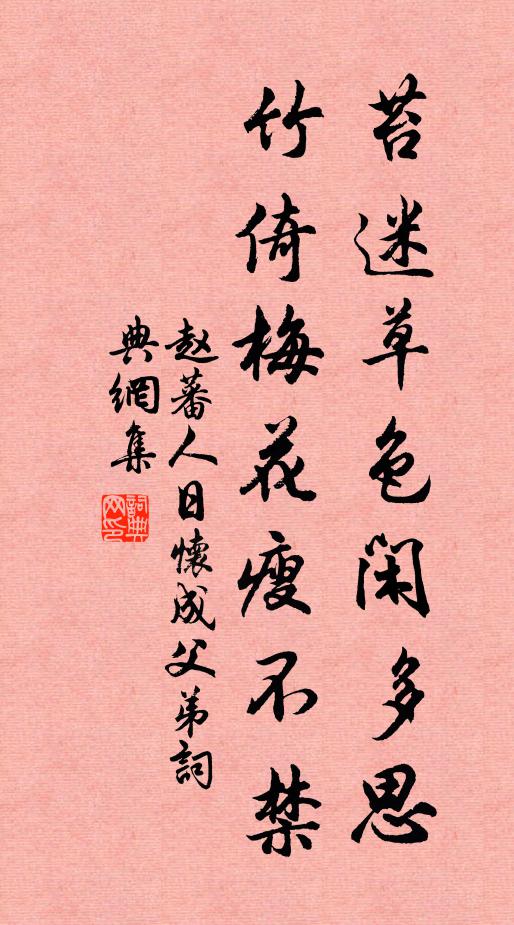 苔迷草色闲多思
竹倚梅花瘦不禁
赵蕃人日懷成父弟詞
典網集
詞典
网印